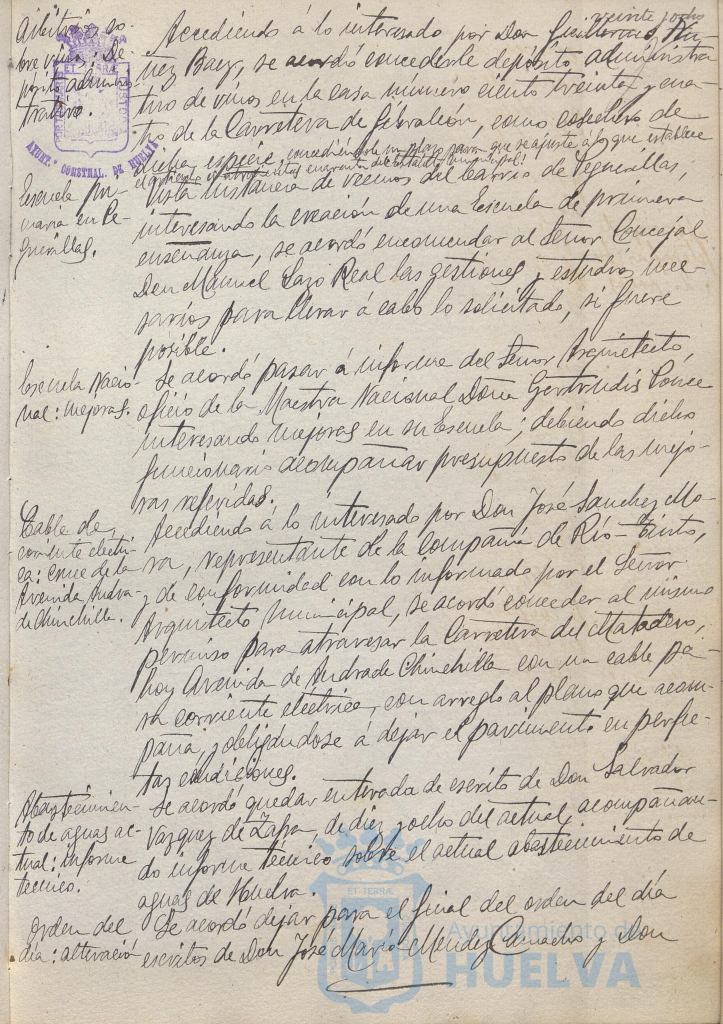 veinte y ocho
Arbitrios so-
bre vinos: De-
pósito adminis-
trativo.
Accediendo á lo interesado por Don Guillermo
Báez, se acordó concederle depósito administra
tivo de vinos en la casa número ciento treinta y cua-
tro de la Carretera de Gibraleón, como cosechero de
dicha especie, concediéndole un plazo para que se ajuste á lo que establece
Escuela pri-
maria en Pe-
guerillas.
Vista instancia de vecinos del barrio de Peguerillas,
interesando la creación de una Escuela de primera
enseñanza, se acordó encomendar al Señor Concejal
Don Manuel Lazo Real las gestiones y estudios nece-
sarios para llevar á cabo lo solicitado, si fuere
posible.
Escuela Nacio-
nal: mejoras.
Se acordó pasar á informe del Señor Arquitecto,
oficio de la Maestra Nacional Doña Gertrudis Ponce
interesando mejoras en su Escuela; debiendo dicho
funcionario acompañar presupuesto de las mejo-
ras referidas.
Cable de
corriente eléctri-
ca: cruce de la
Avenida Andra-
de Chinchilla.
Accediendo á lo interesado por Don José Sanchez Mo-
ra, representante de la Compañía de Río-Tinto,
y de conformidad con lo informado por el Señor
Arquitecto Municipal, se acordó conceder al mismo
permiso para atravesar la Carretera del Matadero,
hoy Avenida de Andrade Chinchilla con un cable pa-
ra corriente eléctrica, con arreglo al plano que acom-
paña, y obligándose á dejar el pavimento en perfec-
tas condiciones.
Abastecimien-
to de aguas ac-
tual: informe
técnico.
Se acordó quedar enterada de escrito de Don Salvador
Vazquez de Zafra, de diez y ocho del actual acompañan-
do informe técnico sobre el actual abastecimiento de
aguas de Huelva.
Orden del
día: alteración
Se acordó dejar para el final del orden del día
escritos de Don José María Mendez Camacho y Don
AYUNT.º CONSTNAL. DE HUELVA
ET TERRÆ
Ayuntamiento de
HUELVA